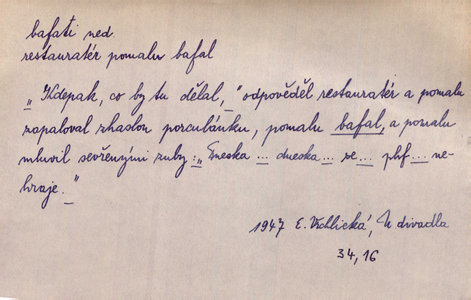 bafati ned.
restauratér pomalu bafal
„Kdepak, co by tu dělal," odpověděl restauratér a pomalu
zapaloval zhaslou porculánku, pomalu bafal, a pomalu
mluvil sevřenými zuby: „Dneska ... dneska ... se ... phf ... ne-
hraje."
1947 E. Vrchlická, U divadla
34,16